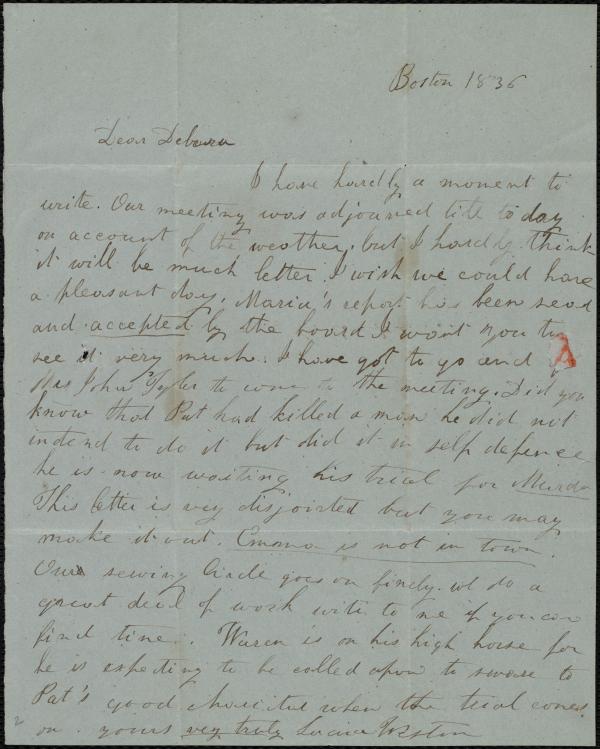 Boston 1836
Dear Debora
I have hardly a moment to
write. Our meeting was adjourned till to day
on account of the weather, but I hardly think
it will be much better. I wish we could have
a pleasant day. Maria's report has been read
and accepted by the board I want you to
see it very much. I have got to go and
Mrs John Tyler to come to the meeting. Did you
know that Pat had killed a man he did not
intend to do it but did it in self defence
he is now waiting his trial for Murder
This letter is very disjointed but you may
make it out. Emma is not in town.
Our sewing Circle goes on finely. we do a
great deal of work write to me if you can
find time. Waren is on his high horse for
he is expecting to be called upon to swear to
Pat's good character when the trial comes
on. yours very truly Lucia Weston
2